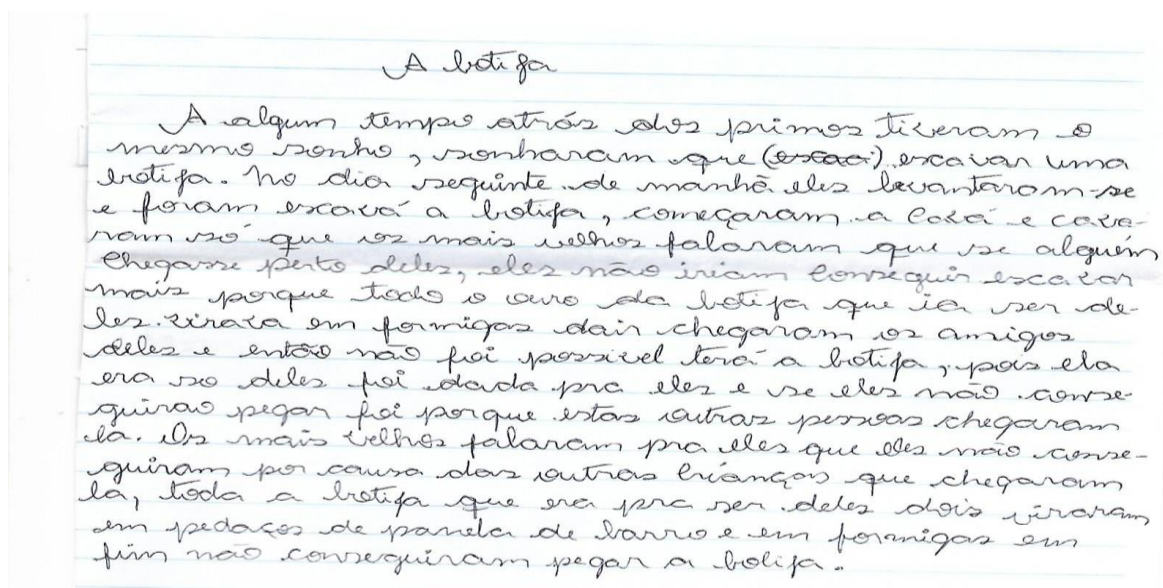 A botija
A algum tempo atrás dos primos tiveram o
mesmo sonho, sonharam que (escaci) escavar uma
botija. No dia seguinte de manhã eles levantaram-se
e foram escavá a botija, começaram a cavá e cava-
ram só que os mais velhos falaram que se alguém
chegasse perto deles, eles não iriam conseguir escavar
mais porque todo o ouro da botija que ia ser de-
les virava em formigas dair chegaram os amigos
deles e então não foi possivel terá a botija, pois ela
era so deles foi dada pra eles e se eles não conse-
guirao pegar foi porque estas outras pessoas chegaram
lá. Os mais velhos falaram pra eles que eles não conse-
guiram por causa das outras crianças que chegaram
lá, toda a botija que era pra ser deles dois viraram
em pedaços de panela de barro e em formigas em
fim não conseguiram pegar a botija.